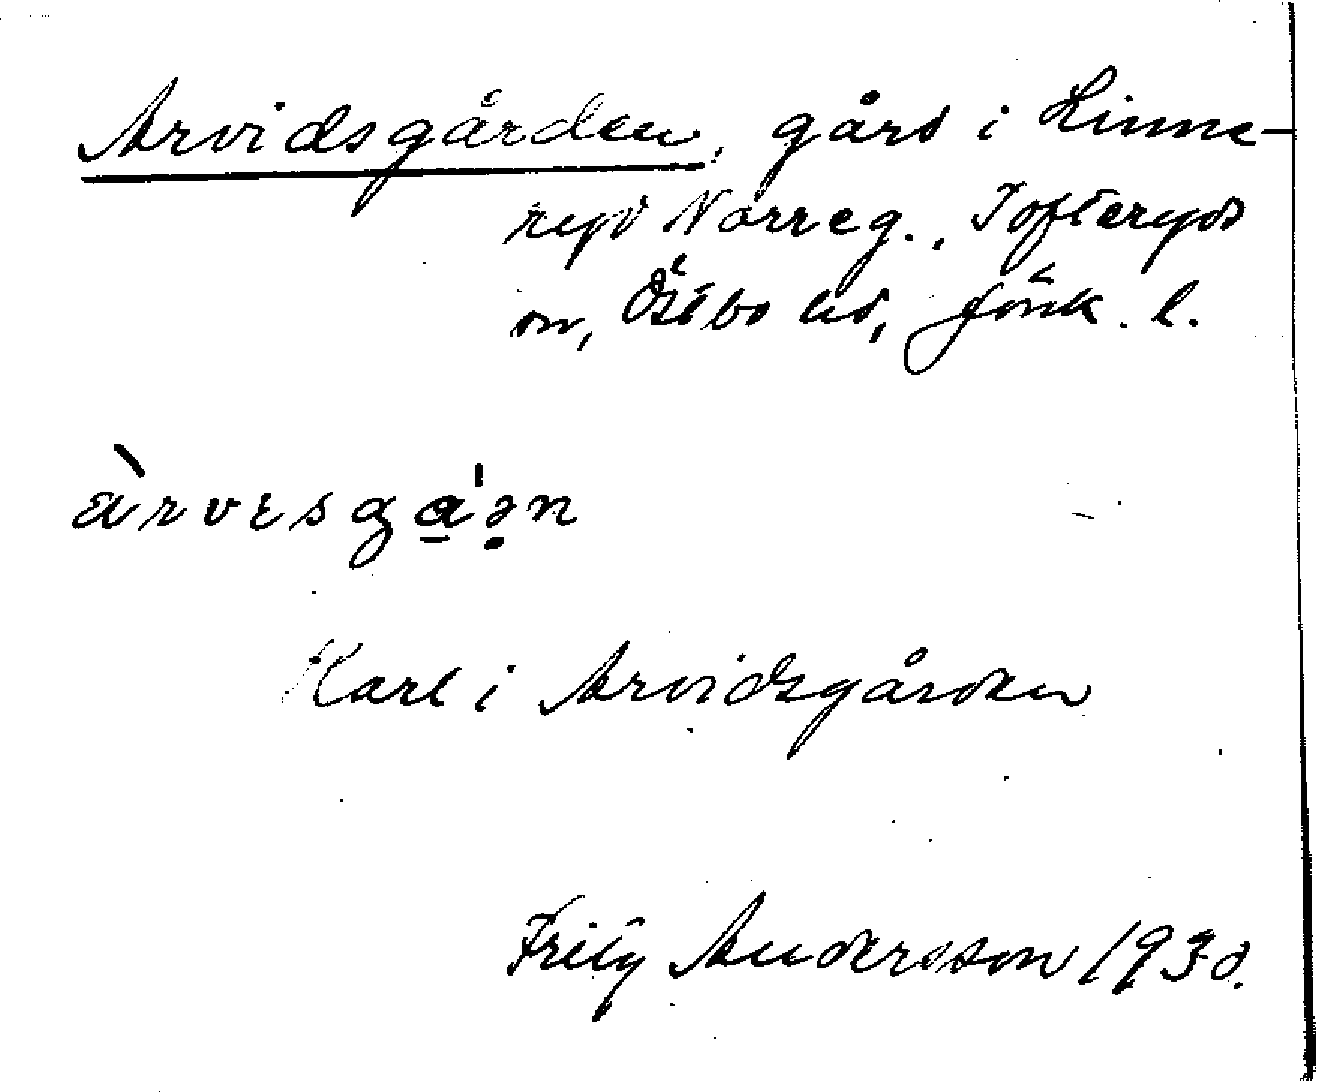 Arvidsgården, gård i Linne-
ryd Norreg., Tofteryds
sn, Östbo hd, Jönk. l.
àrvesga'ən
Karl i Arvidsgården
Frity Andersson 1930.